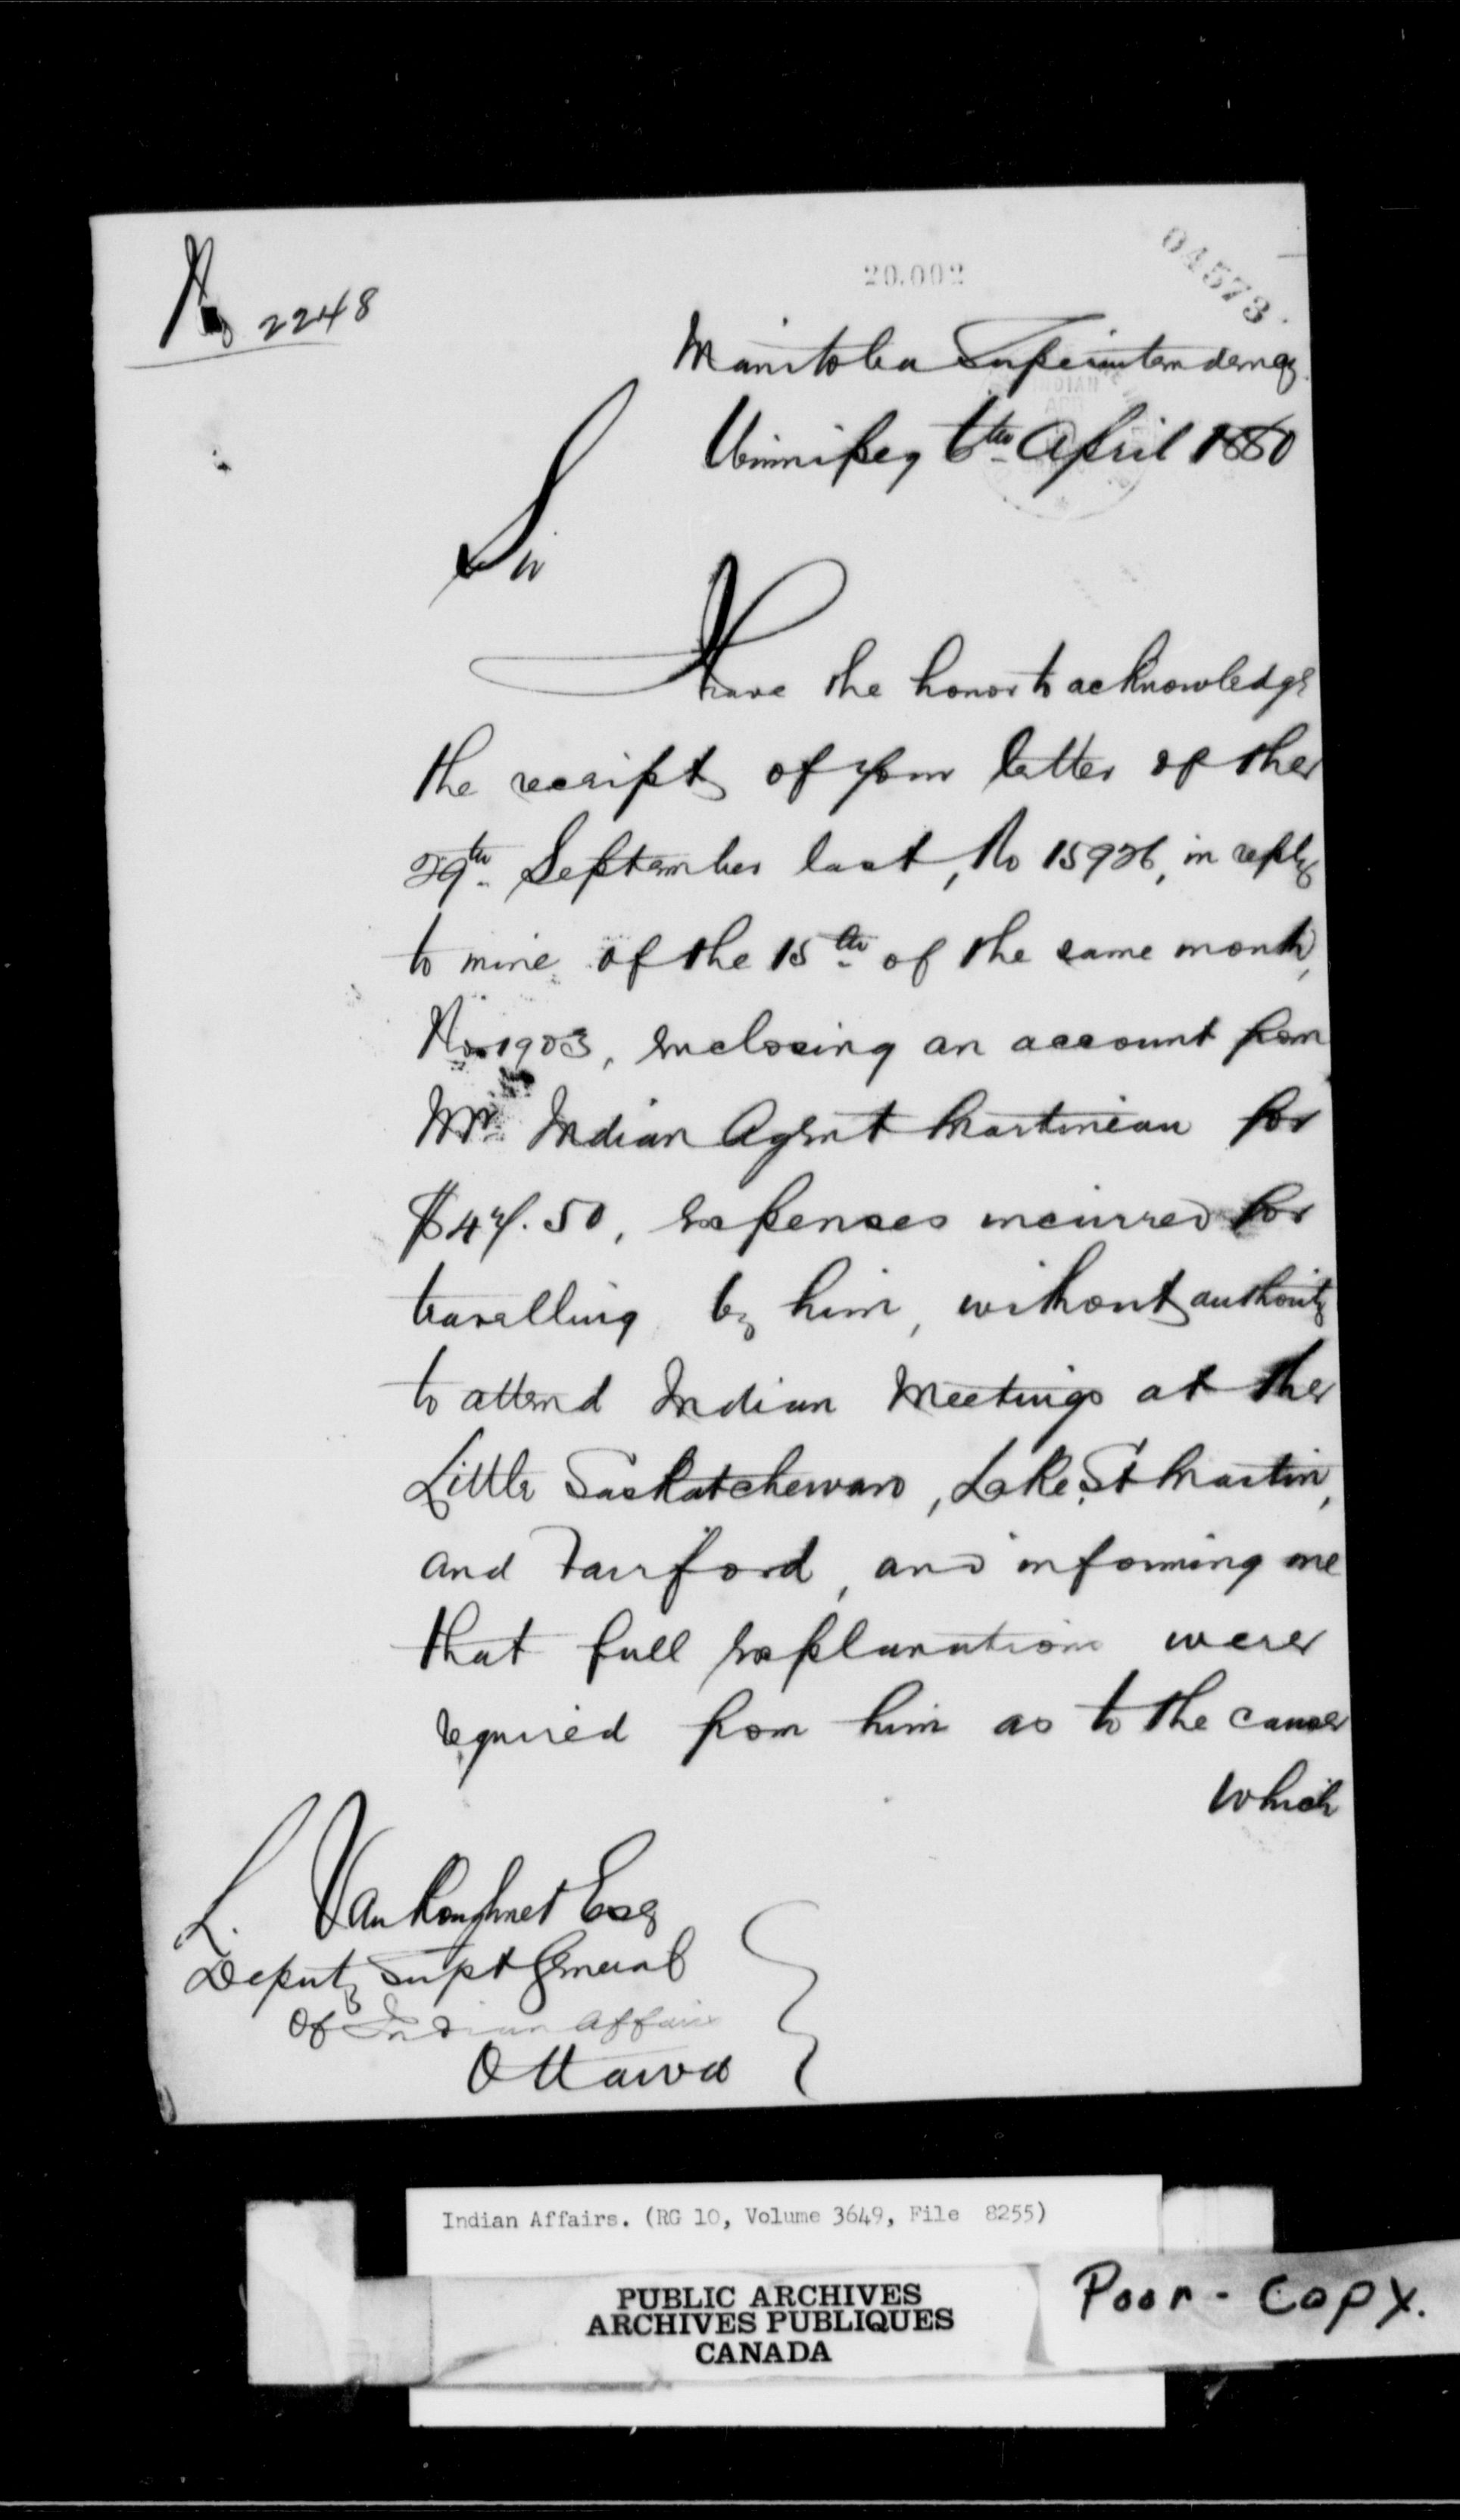 No 2248
20.002
04573
Manitoba Superintendency
Winnipeg 6th April 1880
Sir
I have the honor to acknowledge
the receipt of your letter of the
29th September last, No 15926, in reply
to mine of the 15th of the same month,
No 1903, enclosing an account from
Mr Indian Agent Martineau for
$47.50, expenses incurred for
travelling by him, without authority
to attend Indian Meetings at the
Little Saskatchewan, Lake St Martin,
and Fairford, and informing me
that full explanations were
required from him as to the cause
which
L. VanKoughnet Esq
Deputy Supt General
Of Indian Affairs
Ottawa
Indian Affairs. (RG 10, Volume 3649, File 8255)
PUBLIC ARCHIVES
ARCHIVES PUBLIQUES
CANADA
Poor - Copy.